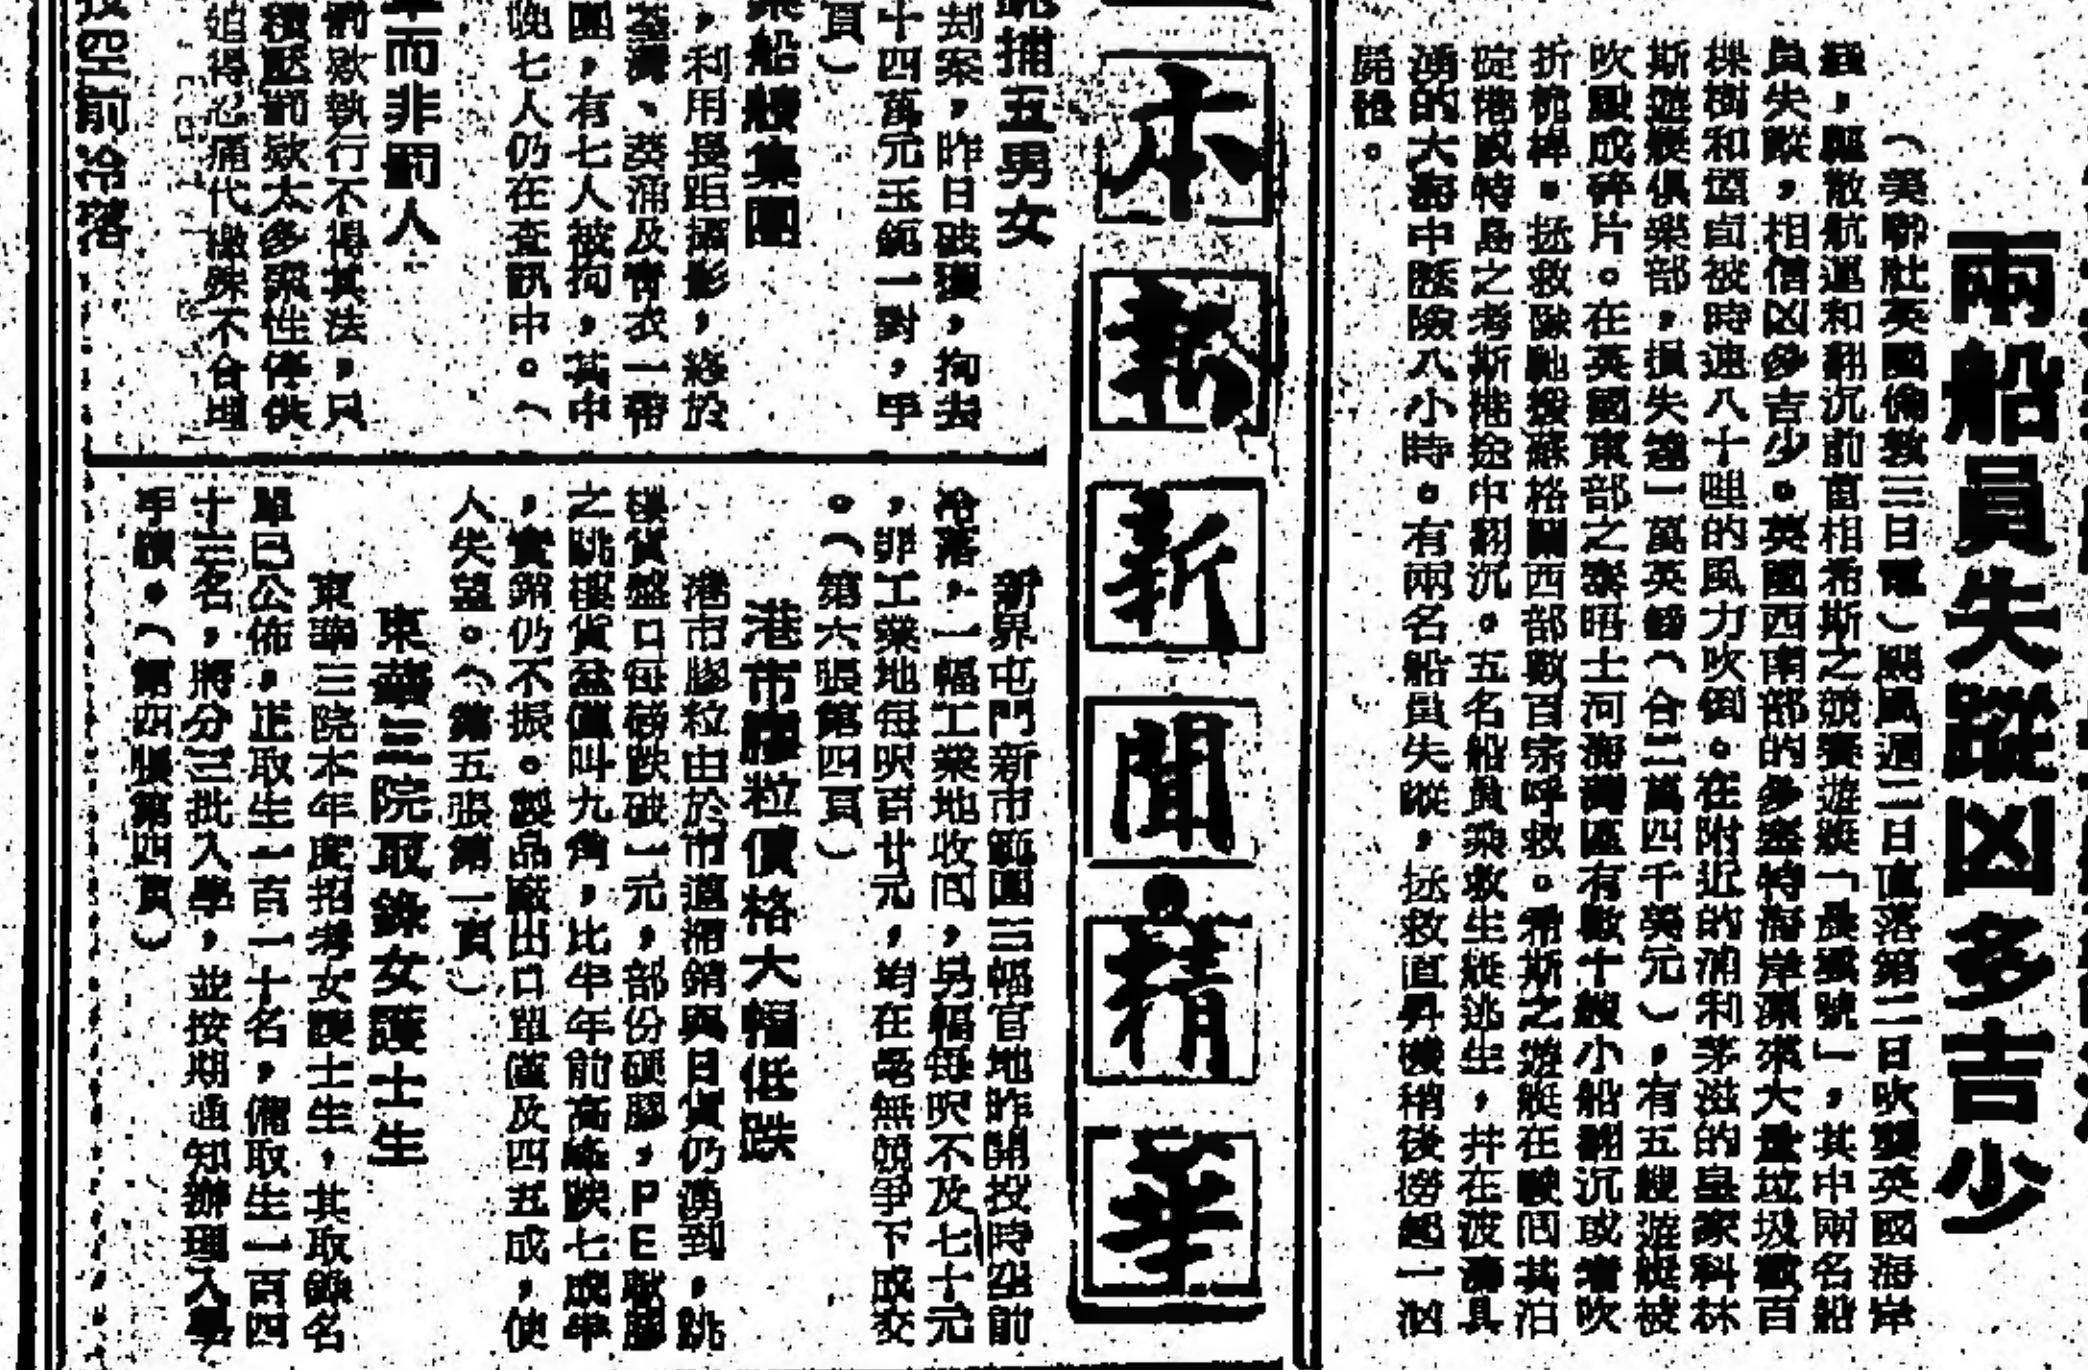 兩船員失蹤凶多吉少
(美聯社英國倫敦三日電)颶風週二日直落第二日吹襲英國海岸
,驅散航運和翻沉前首相希斯之競賽遊艇「晨風號」,其中兩名船
員失蹤,相信凶多吉少。英國西南部的多塞特海岸漂來大量垃圾數百
樹和煙囪被時速八十哩的風力吹倒。在附近的浦利茅滋的皇家科林
斯遊艇俱樂部,損失逾一萬英鎊(合二萬四千美元),有五艘遊艇被
吹風成碎片。在英國東部之泰晤士河海灣區有數十艘小船翻沉或增吹
折桅桿。拯救隊馳援蘇格蘭西部數百宗呼救。希斯之遊艇在駛回其泊
碇港威特島之考斯港途中翻沉。五名船員乘救生艇逃生,并在波濤具
湧的大海中歷險八小時。有兩名船員失蹤,拯救直昇機稍後撈起一泅
屍體。
本
報
新
聞
精
華
捕五男女
刦案,昨日破獲,拘去
十四萬元玉鈪一對,手
頁)
船艘集團
,利用長距攝影,終於
荃灣、葵涌及青衣一帶
團,有七人被拘,其中
晚七人仍在查訊中。(
而非罰人
罰欵執行不得其法,只
積壓罰欵太多索性停供
迫得忍痛代繳殊不合理
投空前冷落
新界屯門新市範圍三幅官地昨開投時空前
冷落,一幅工業地收回,另幅每呎不及七十元
,非工業地每呎百廿元,均在毫無競爭下成交
。(第六張第四頁)
港市膠粒價格大幅低跌
港市膠粒由於市道滯銷與日貨仍湧到,跳
樓貨盤口每磅跌破一元,部份硬膠,PE軟膠
之跳樓貨盆僅叫九角,比半年前高峰跌七成半
,實銷仍不振。製品廠出口單僅及四五成,使
人失望。(第五張第一頁)
東華三院取錄女護士生
東華三院本年度招考女護士生,其取錄名
單已公佈,正取生一百一十名,備取生一百四
十三名,將分三批入學,並按期通知辦理入學
手續。(第四張第四頁)